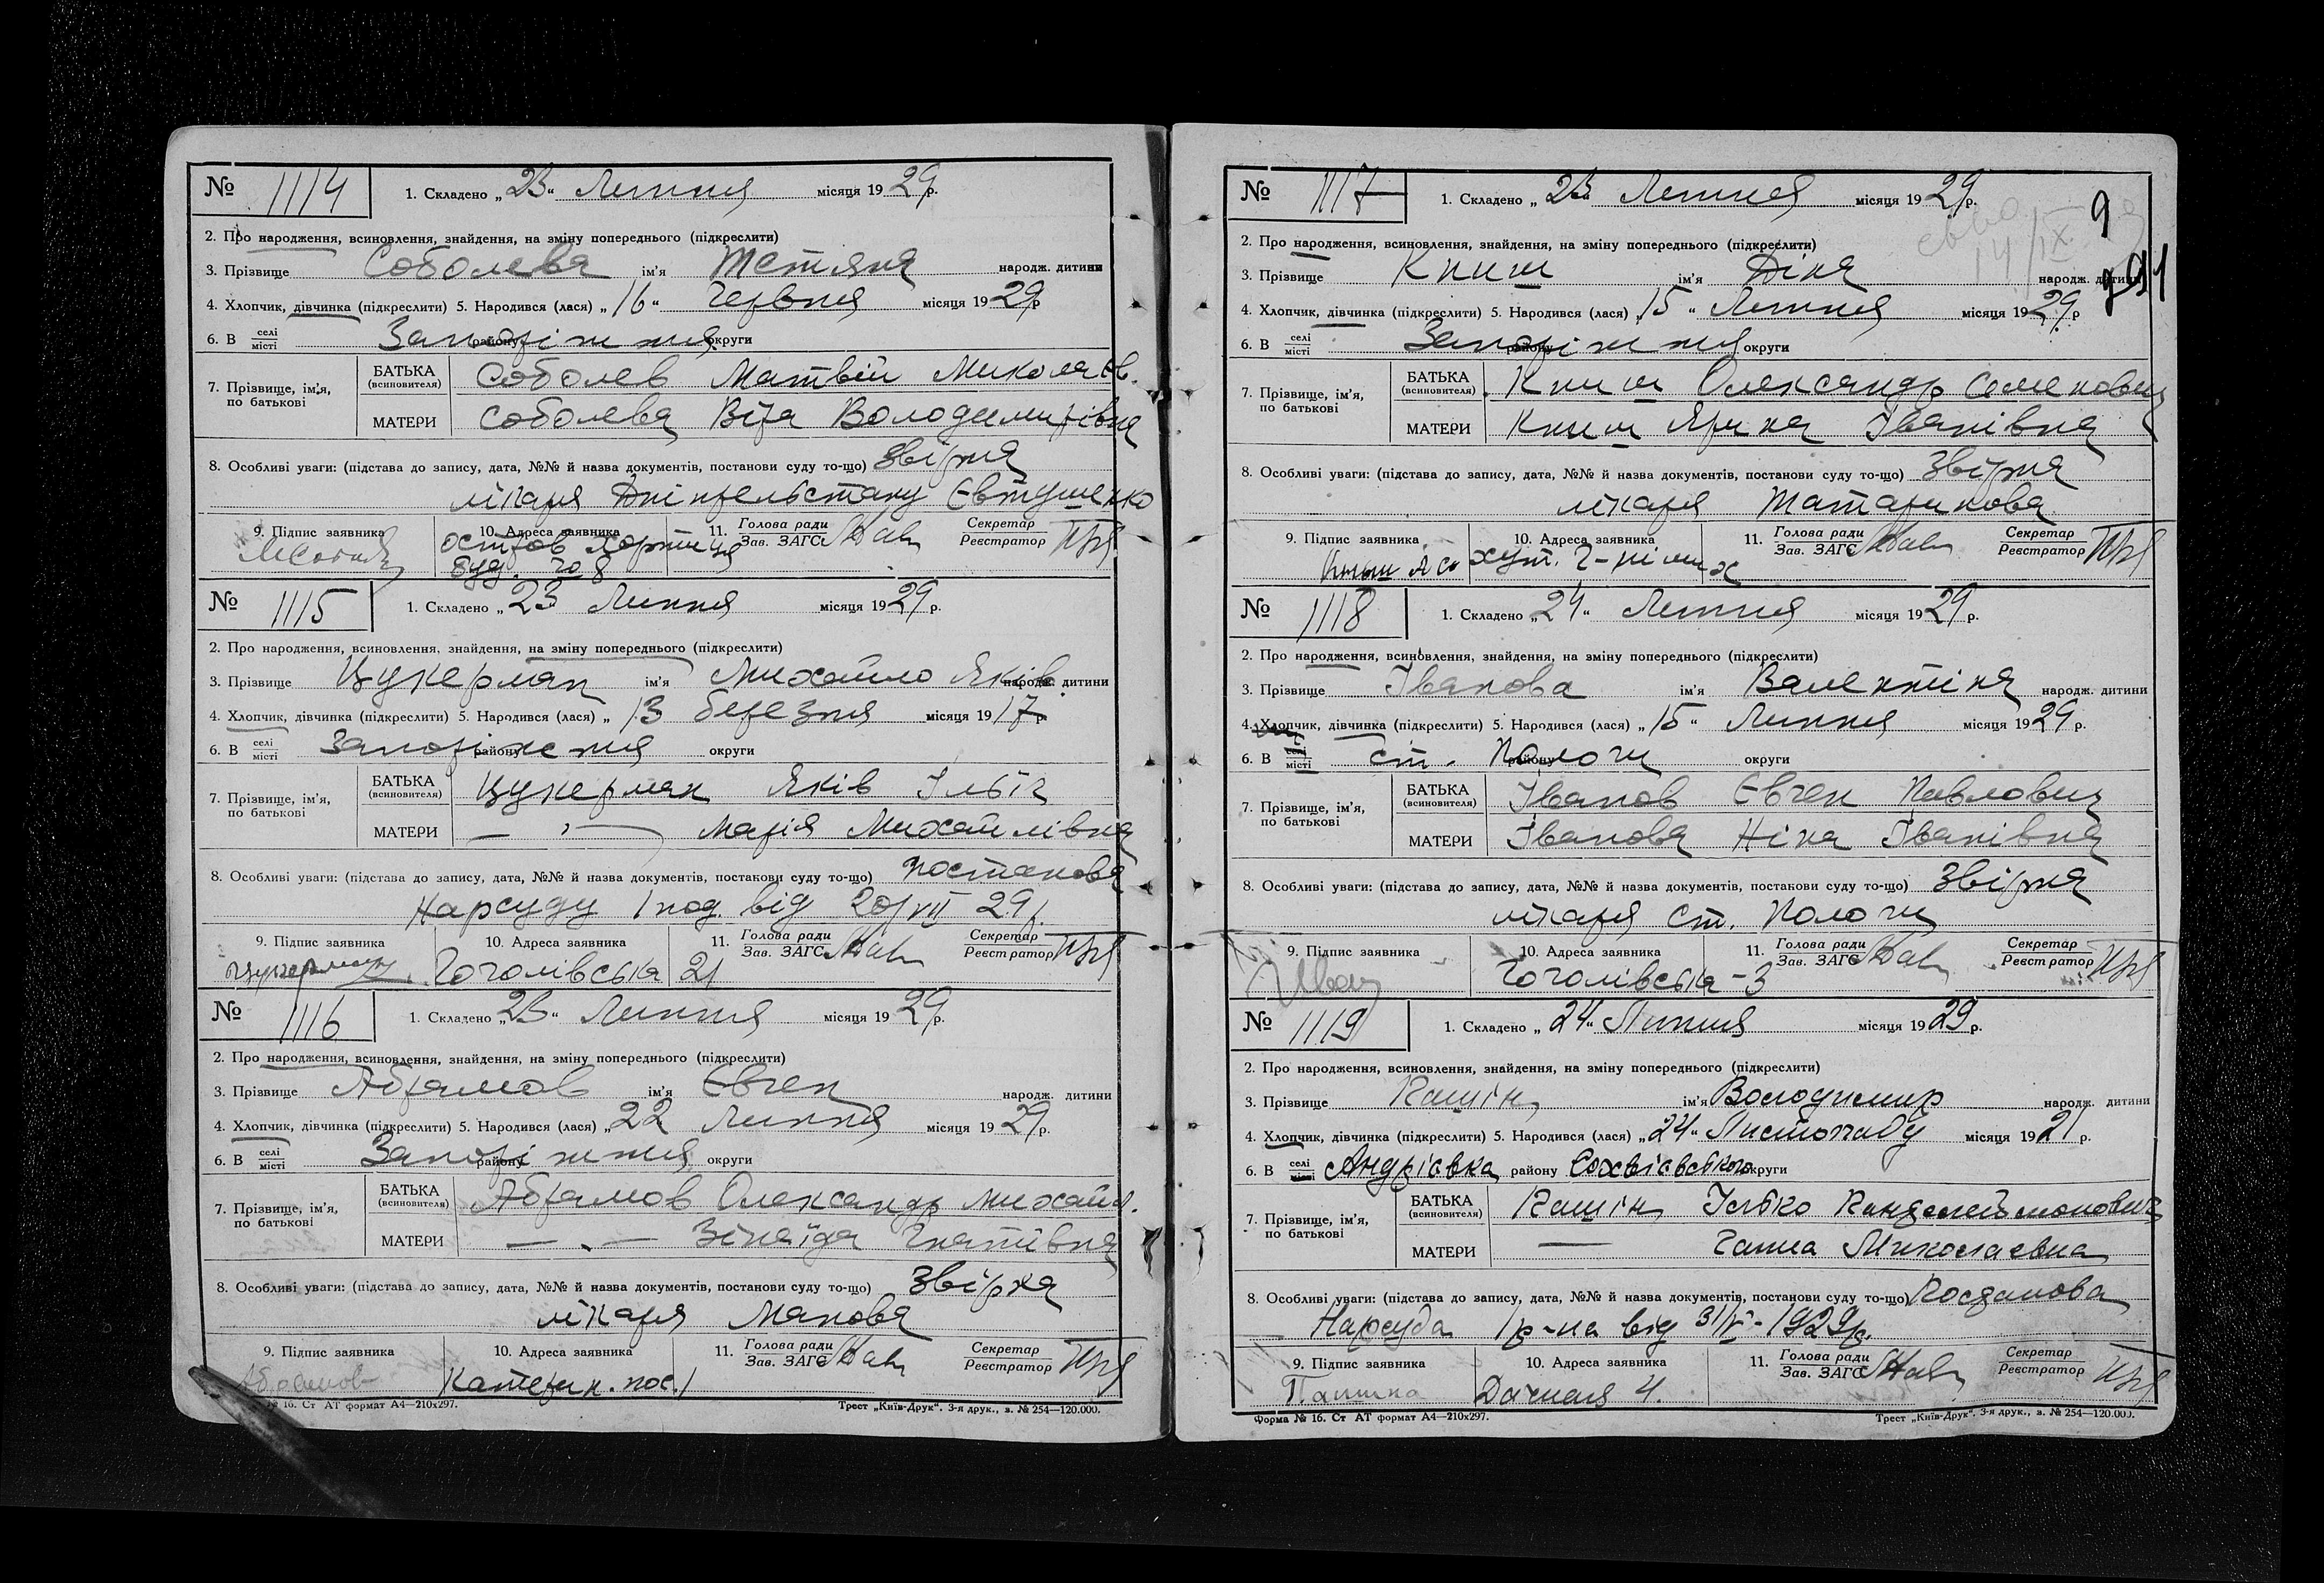 № 1114 1. Складено „23“ Липня місяця 1929 р.
2. Про народження, всиновлення, знайдення, на зміну попереднього (підкреслити)
3. Прізвище Соболева ім'я Тетяна народж. дитини
4. Хлопчик, дівчинка (підкреслити) 5. Народився (лася) „16“ Червня місяця 1929 р
6. В селі місті Запоріжжя району округи
7. Прізвище, ім'я, по батькові БАТЬКА (всиновителя) Соболев Матвій Миколаєв.
МАТЕРИ Соболева Віра Володимирівна
8. Особливі уваги: (підстава до запису, дата, №№ й назва документів, постанови суду то-що) Звірка
лікаря Дніпрельстану Євтушенко
9. Підпис заявника 10. Адреса заявника 11. Голова ради Зав. ЗАГС Секретар Реєстратор
остров Хортиця
буд. 8
№ 1115 1. Складено „23 Липня місяця 1929 р.
2. Про народження, всиновлення, знайдення, на зміну попереднього (підкреслити)
3. Прізвище Цукерман ім'я Михайло Яків. народж. дитини
4. Хлопчик, дівчинка (підкреслити) 5. Народився (лася) „13 березня місяця 1917 р
6. В селі місті Запоріжжя району округи
7. Прізвище, ім'я, по батькові БАТЬКА (всиновителя) Цукерман Яків Ільїч
МАТЕРИ — „ — Марія Михайлівна
8. Особливі уваги: (підстава до запису, дата, №№ й назва документів, постанови суду то-що) постанова
Нарсуду 1 под. від 20/VII 29р.
9. Підпис заявника 10. Адреса заявника 11. Голова ради Зав. ЗАГС Секретар Реєстратор
Цукерман Гоголівська 21
№ 1116 1. Складено „23“ Липня місяця 1929 р.
2. Про народження, всиновлення, знайдення, на зміну попереднього (підкреслити)
3. Прізвище Абрамов ім'я Євген народж. дитини
4. Хлопчик, дівчинка (підкреслити) 5. Народився (лася) „22 Липня місяця 1929 р.
6. В селі місті Запоріжжя району округи
7. Прізвище, ім'я, по батькові БАТЬКА (всиновителя) Абрамов Олександр Михайл.
МАТЕРИ — „ — Зінаїда Гнатівна
8. Особливі уваги: (підстава до запису, дата, №№ й назва документів, постанови суду то-що) Звірка
лікаря Манова
9. Підпис заявника 10. Адреса заявника 11. Голова ради Зав. ЗАГС Секретар Реєстратор
Абрамов Катерин. пос. 1
№ 16. Ст АТ формат А4—210х297. Трест „Київ-Друк“. 3-я друк., з. № 254—120.000.
9
№ 1117 1. Складено „23“ Липня місяця 1929 р.
2. Про народження, всиновлення, знайдення, на зміну попереднього (підкреслити)
14/IX
3. Прізвище Книш ім'я Діна народж. дитини
4. Хлопчик, дівчинка (підкреслити) 5. Народився (лася) „15“ Липня місяця 1929 р
6. В селі місті Запоріжжя району округи
7. Прізвище, ім'я, по батькові БАТЬКА (всиновителя) Книш Олександр Семенович
МАТЕРИ Книш Ярина Іванівна
8. Особливі уваги: (підстава до запису, дата, №№ й назва документів, постанови суду то-що) Звірка
лікаря Татаринова
9. Підпис заявника 10. Адреса заявника 11. Голова ради Зав. ЗАГС Секретар Реєстратор
Книш хут.
№ 1118 1. Складено „24“ Липня місяця 1929 р.
2. Про народження, всиновлення, знайдення, на зміну попереднього (підкреслити)
3. Прізвище Іванова ім'я Валентіна народж. дитини
4. Хлопчик, дівчинка (підкреслити) 5. Народився (лася) „15“ Липня місяця 1929 р.
6. В селі місті ст. Пологи району округи
7. Прізвище, ім'я, по батькові БАТЬКА (всиновителя) Іванов Євген Павлович
МАТЕРИ Іванова Ніна Іванівна
8. Особливі уваги: (підстава до запису, дата, №№ й назва документів, постанови суду то-що) Звірка
лікаря ст. Пологи
9. Підпис заявника 10. Адреса заявника 11. Голова ради Зав. ЗАГС Секретар Реєстратор
Гоголівська - 3
№ 1119 1. Складено „24“ Липня місяця 1929 р.
2. Про народження, всиновлення, знайдення, на зміну попереднього (підкреслити)
3. Прізвище Кашін ім'я Володимир народж. дитини
4. Хлопчик, дівчинка (підкреслити) 5. Народився (лася) „24“ Листопаду місяця 1921 р.
6. В селі місті Андріївка району округи
7. Прізвище, ім'я, по батькові БАТЬКА (всиновителя) Кашін Ілько
МАТЕРИ — Ганна Миколаєвна
8. Особливі уваги: (підстава до запису, дата, №№ й назва документів, постанови суду то-що) Постанова
Нарсуда 1 р-на від 1929р.
9. Підпис заявника 10. Адреса заявника 11. Голова ради Зав. ЗАГС Секретар Реєстратор
Дачная 4.
Форма № 16. Ст АТ формат А4—210х297. Трест „Київ-Друк“. 3-я друк., з. № 254—120.000.